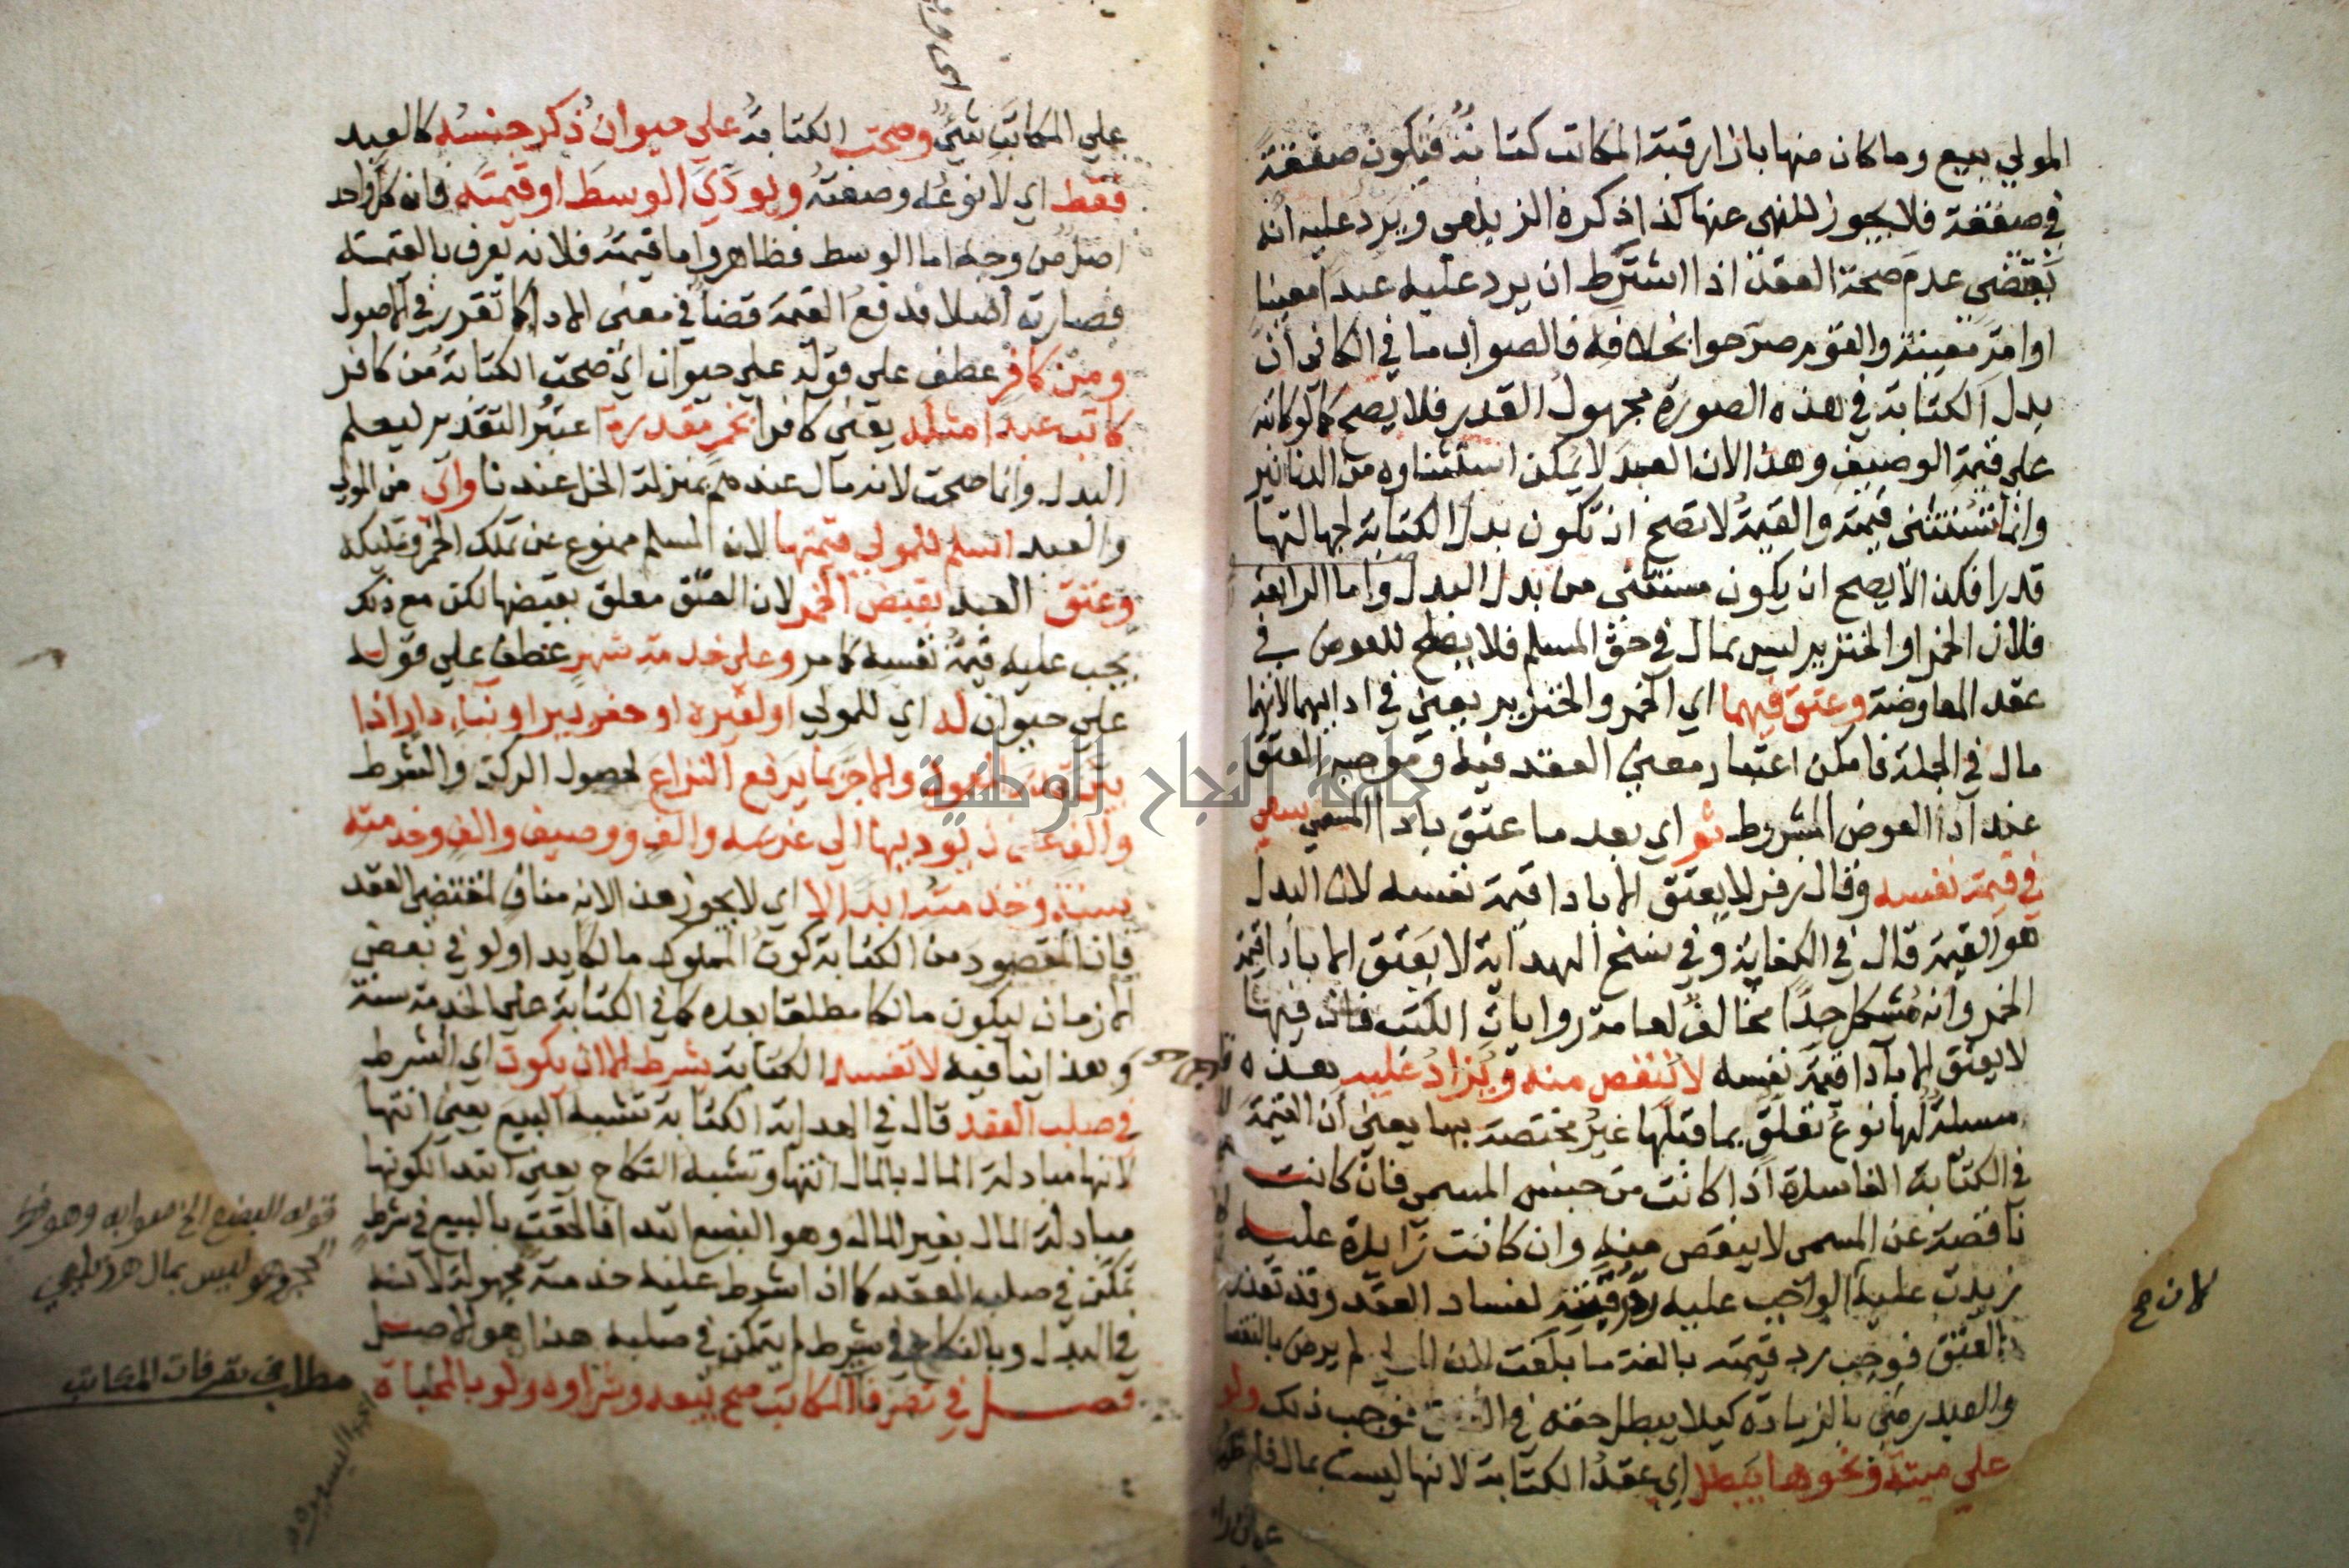 المولي بيع وما كان منها بازا رقبة المكاتب كتابة فيكون صفقة
في صفقة فلا يجوز للنهي عنها كذا ذكره الزيلعي ويرد عليه انه
يقتضي عدم صحة العقد اذا اشترط ان يرد عليه عبدا معينا
او امة معينة والقوم صرحوا بخلافه فالصواب ما في الكافي ان
بدل الكتابة في هذه الصورة مجهول القدر فلا يصح كما لو كاتبه
علي قيمة الوصيف وهذا لان العبد لا يمكن استثناوه من الدنانير
وانما تستثني قيمته والقيمة لا تصح ان تكون بدل الكتابة لجهالتها
قدرا فكذا لا يصح ان يكون مستثني من بدل البدل واما الرابعة
فلان الخمر او الخنزير ليس بمال في حق المسلم فلا يصلح للعوض في
عقد المعاوضة وعتق فيهما اي الخمر والخنزير يعني في ادايهما لانهما
مال في الجملة فامكن اعتبار معني العقد فيه وموجبه العتق
عند ادا العوض المشروط ثم اي بعد ما عتق بادا المسمي سعي
في قيمة نفسه وقال زفر لا يعتق الا بادا قيمة نفسه لان البدل
هو القيمة قال في الكفاية وفي نسخ الهداية لا يعتق الا بادا قيمة
الخمر وانه مشكل جدا مخالف لعامة روايات الكتب فان فيها
لا يعتق الا بادا قيمة نفسه لا ينقص منه ويزاد عليه هذه
مسئلة لها نوع تعلق بما قبلها غير مختصة بها يعني ان القيمة
في الكتابة الفاسدة اذا كانت من جنس المسمي فان كانت
ناقصة عن المسمي لا ينقص منه وان كانت زايدة عليه
زيدت عليه الواجب عليه رد رقبته لفساد العقد وقد تعذر
بالعتق فوجب رد قيمته بالغة ما بلغت لان المولي لم يرض بالنقصا
والعبد رضي بالزيادة كيلا يبطل حقه في العتق فوجب ذلك ولو
علي ميتة ونحوها يبطل اي عقد الكتابة لانها ليست بمال فلم
كان صح
علي المكاتب شي وصحت الكتابة علي حيوان ذكر جنسه كالعبد
فقط اي لا نوعه وصفته ويودي الوسط او قيمته فان كل واحد
اصل من وجه اما الوسط فظاهر واما قيمته فلانه يعرف بالقيمة
فصارت اصلا فدفع القيمة قضا في معني الادا كما تقرر في الاصول
ومن كافر عطف علي قوله علي حيوان اي صحت الكتابة من كافر
كاتب عبدا مثله يعني كافرا بخمر مقدرة اعتبر التقدير ليعلم
البدل وانما صحت لانه مال عندهم بمنزلة الخل عندنا واي من المولي
والعبد اسلم للمولي قيمتها لان المسلم ممنوع عن تملك الخمر وتمليكه
وعتق العبد بقبض الخمر لان العتق معلق بقبضها لكن مع ذلك
يجب عليه قيمة نفسه كما مر وعلي خدمة شهر عطف علي قوله
علي حيوان له اي للمولي او لغيره او حفر بير او بناء دار اذا
بين قدر المعمول والاجر بما يرفع النزاع لحصول الركن والشرط
والف علي ان يوديها الي غريمه والف ووصيف والف وخدمته
سنة وخدمته ابدا لا اي لا يجوز هذا لانه مناف لمقتضي العقد
فان المقصود من الكتابة كون المملوك مالكا يدا ولو في بعض
الازمان ليكون مالكا مطلقا بعده كما في الكتابة علي الخدمة سنة
وهذا ينافيه لا تفسد الكتابة بشرط الا ان يكون اي الشرط
في صلب العقد قال في الهداية الكتابة تشبه البيع يعني انتها
لانها مبادلة المال بالمال انتها وتشبه النكاح يعني ابتدا لكونها
مبادلة المال بغير المال وهو البضع ابتدا فالحقت بالبيع في شرط
تمكن في صلب العقد كما اذا شرط عليه خدمة مجهولة لانه
في البدل وبالنكاح في شرط لم يتمكن في صلبه هذا هو الاصل
فصل في تصرف المكاتب صح بيعه وشراوه ولو بالمحاباة
قوله البضع الخ صوابه وهو فك
الحجر وهو ليس بمال هو زيلعي
مطلب في تصرفات المكاتب
جامعة النجاح الوطنية